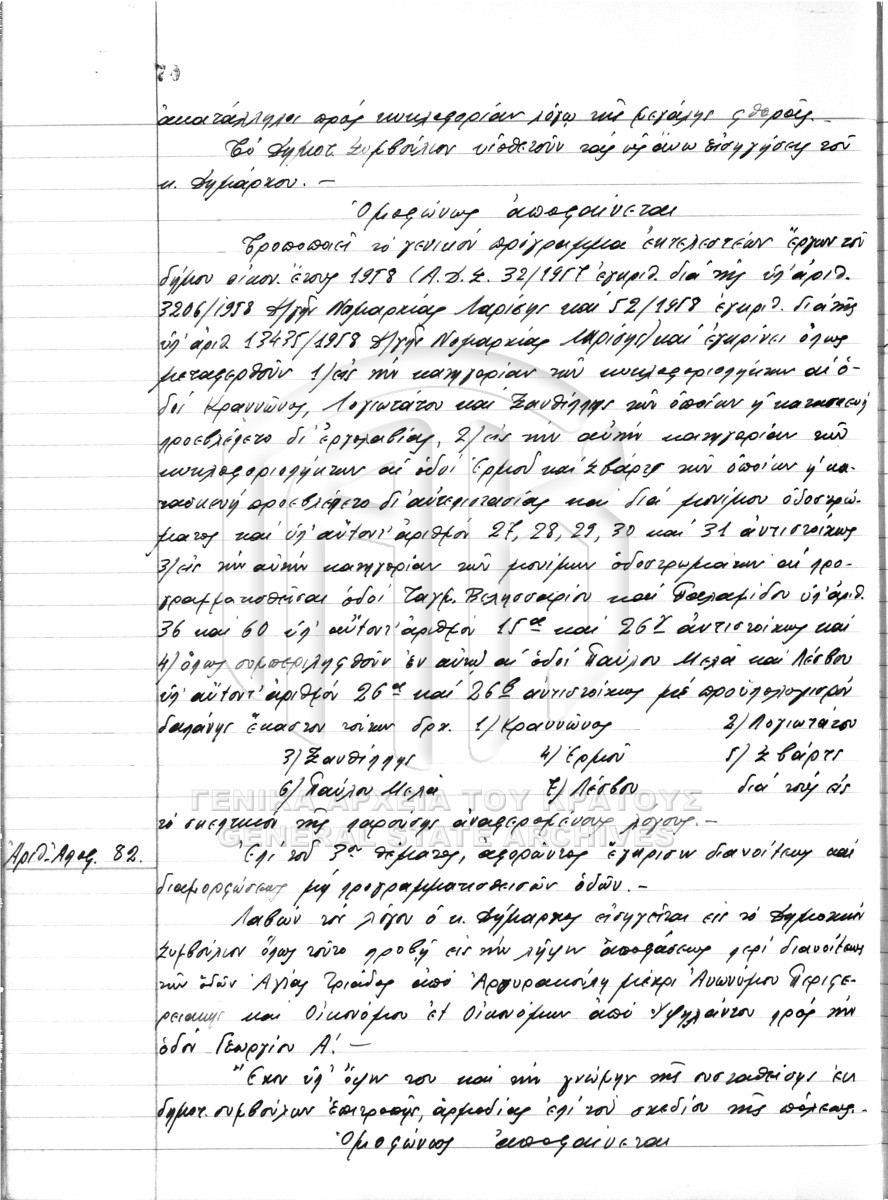 ἀκατάλληλοι πρός κυκλοφορίαν λόγῳ τῆς μεγάλης φθορᾶς.-
Τό Δημοτ. Συμβούλιον υἱοθετοῦν τάς ὡς ἄνω εἰσηγήσεις τοῦ
κ. Δημάρχου. -
Ὁμοφώνως ἀποφαίνεται
Τροποποιεῖ τό γενικόν πρόγραμμα ἐκτελεστέων ἔργων τοῦ
δήμου οἰκον. ἔτους 1958 (Α.Δ.Σ. 32/1957 ἐγκριθ. διά τῆς ὑπ' ἀριθ.
3206/1958 Δ/γῆς Νομαρχίας Λαρίσης καί 52/1958 ἐγκριθ. διά τῆς
ὑπ' ἀριθ. 13435/1958 Δ/γῆς Νομαρχίας Λαρίσης) καί ἐγκρίνει ὅπως
μεταφερθοῦν 1) εἰς τήν κατηγορίαν τῶν κυκλοφοριοπλήκτων αἱ ὁ-
δοί Κραννῶνος, Λογιωτάτου καί Ξανθίππης τῶν ὁποίων ἡ κατασκευή
προεβλέπετο δι' ἐργολαβίας, 2) εἰς τήν αὐτήν κατηγορίαν τῶν
κυκλοφοριοπλήκτων αἱ ὁδοί Ἑρμοῦ καί Σβάρτς τῶν ὁποίων ἡ κα-
τασκευή προεβλέπετο δι' αὐτεπιστασίας καί διά μονίμου ὁδοστρώ-
ματος καί ὑπ' αὔξοντ' ἀριθμόν 27, 28, 29, 30 καί 31 ἀντιστοίχως
3) εἰς τήν αὐτήν κατηγορίαν τῶν μονίμων ὁδοστρωμάτων αἱ προ-
γραμματισθεῖσαι ὁδοί Ταγμ. Βελησσαρίου καί Παλαμίδου ὑπ' ἀριθ.
36 καί 60 ὑπ' αὔξοντ' ἀριθμόν 15α καί 26γ ἀντιστοίχως καί
4) ὅπως συμπεριληφθοῦν ἐν αὐτῷ αἱ ὁδοί Παύλου Μελᾶ καί Λέσβου
ὑπ' αὔξοντ' ἀριθμόν 26α καί 26β ἀντιστοίχως μέ προϋπολογισμόν
δαπάνης ἕκαστον τούτων δρχ. 1) Κραννῶνος 2) Λογιωτάτου
3) Ξανθίππης 4) Ἑρμοῦ 5) Σβάρτς
6) Παύλου Μελᾶ 7) Λέσβου διά τούς εἰς
ΓΕΝΙΚΑ ΑΡΧΕΙΑ ΤΟΥ ΚΡΑΤΟΥΣ
τό σκεπτικόν τῆς παρούσης ἀναφερομένους λόγους.-
GENERAL STATE ARCHIVES
Ἀριθ. Ἀποφ. 82. Ἐπί τοῦ 3ου θέματος, ἀφορῶντος ἔγκρισιν διανοίξεως καί
διαμορφώσεως μή προγραμματισθεισῶν ὁδῶν.-
Λαβών τόν λόγον ὁ κ. Δήμαρχος εἰσηγεῖται εἰς τό Δημοτικόν
Συμβούλιον ὅπως τοῦτο προβῇ εἰς τήν λῆψιν ἀποφάσεως περί διανοίξεως
τῶν ὁδῶν Ἁγίας Τριάδος ἀπό Ἀργυρακούλη μέχρι Ἀνωνύμου Περιφε-
ρειακῆς καί Οἰκονόμου ἐξ Οἰκονόμων ἀπό Ὑψηλάντου πρός τήν
ὁδόν Γεωργίου Α'. -
Ἔχον ὑπ' ὄψιν του καί τήν γνώμην τῆς συσταθείσης ἐκ
δημοτ. συμβούλων ἐπιτροπῆς, ἁρμοδίας ἐπί τοῦ σχεδίου τῆς πόλεως.-
Ὁμοφώνως ἀποφαίνεται